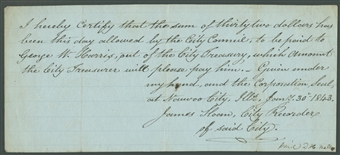 I hereby Certify that the sum of thirty two dollars has
been this day allowed by the City Council, to be paid to
George W. Harris, out of the City Treasury, which Amount
the City Treasurer will please pay him. Given under
my hand, and the Corporation Seal,
at Nauvoo City, Ills, Jany. 30th 1843.
James Sloan, City Recorder
of said City.